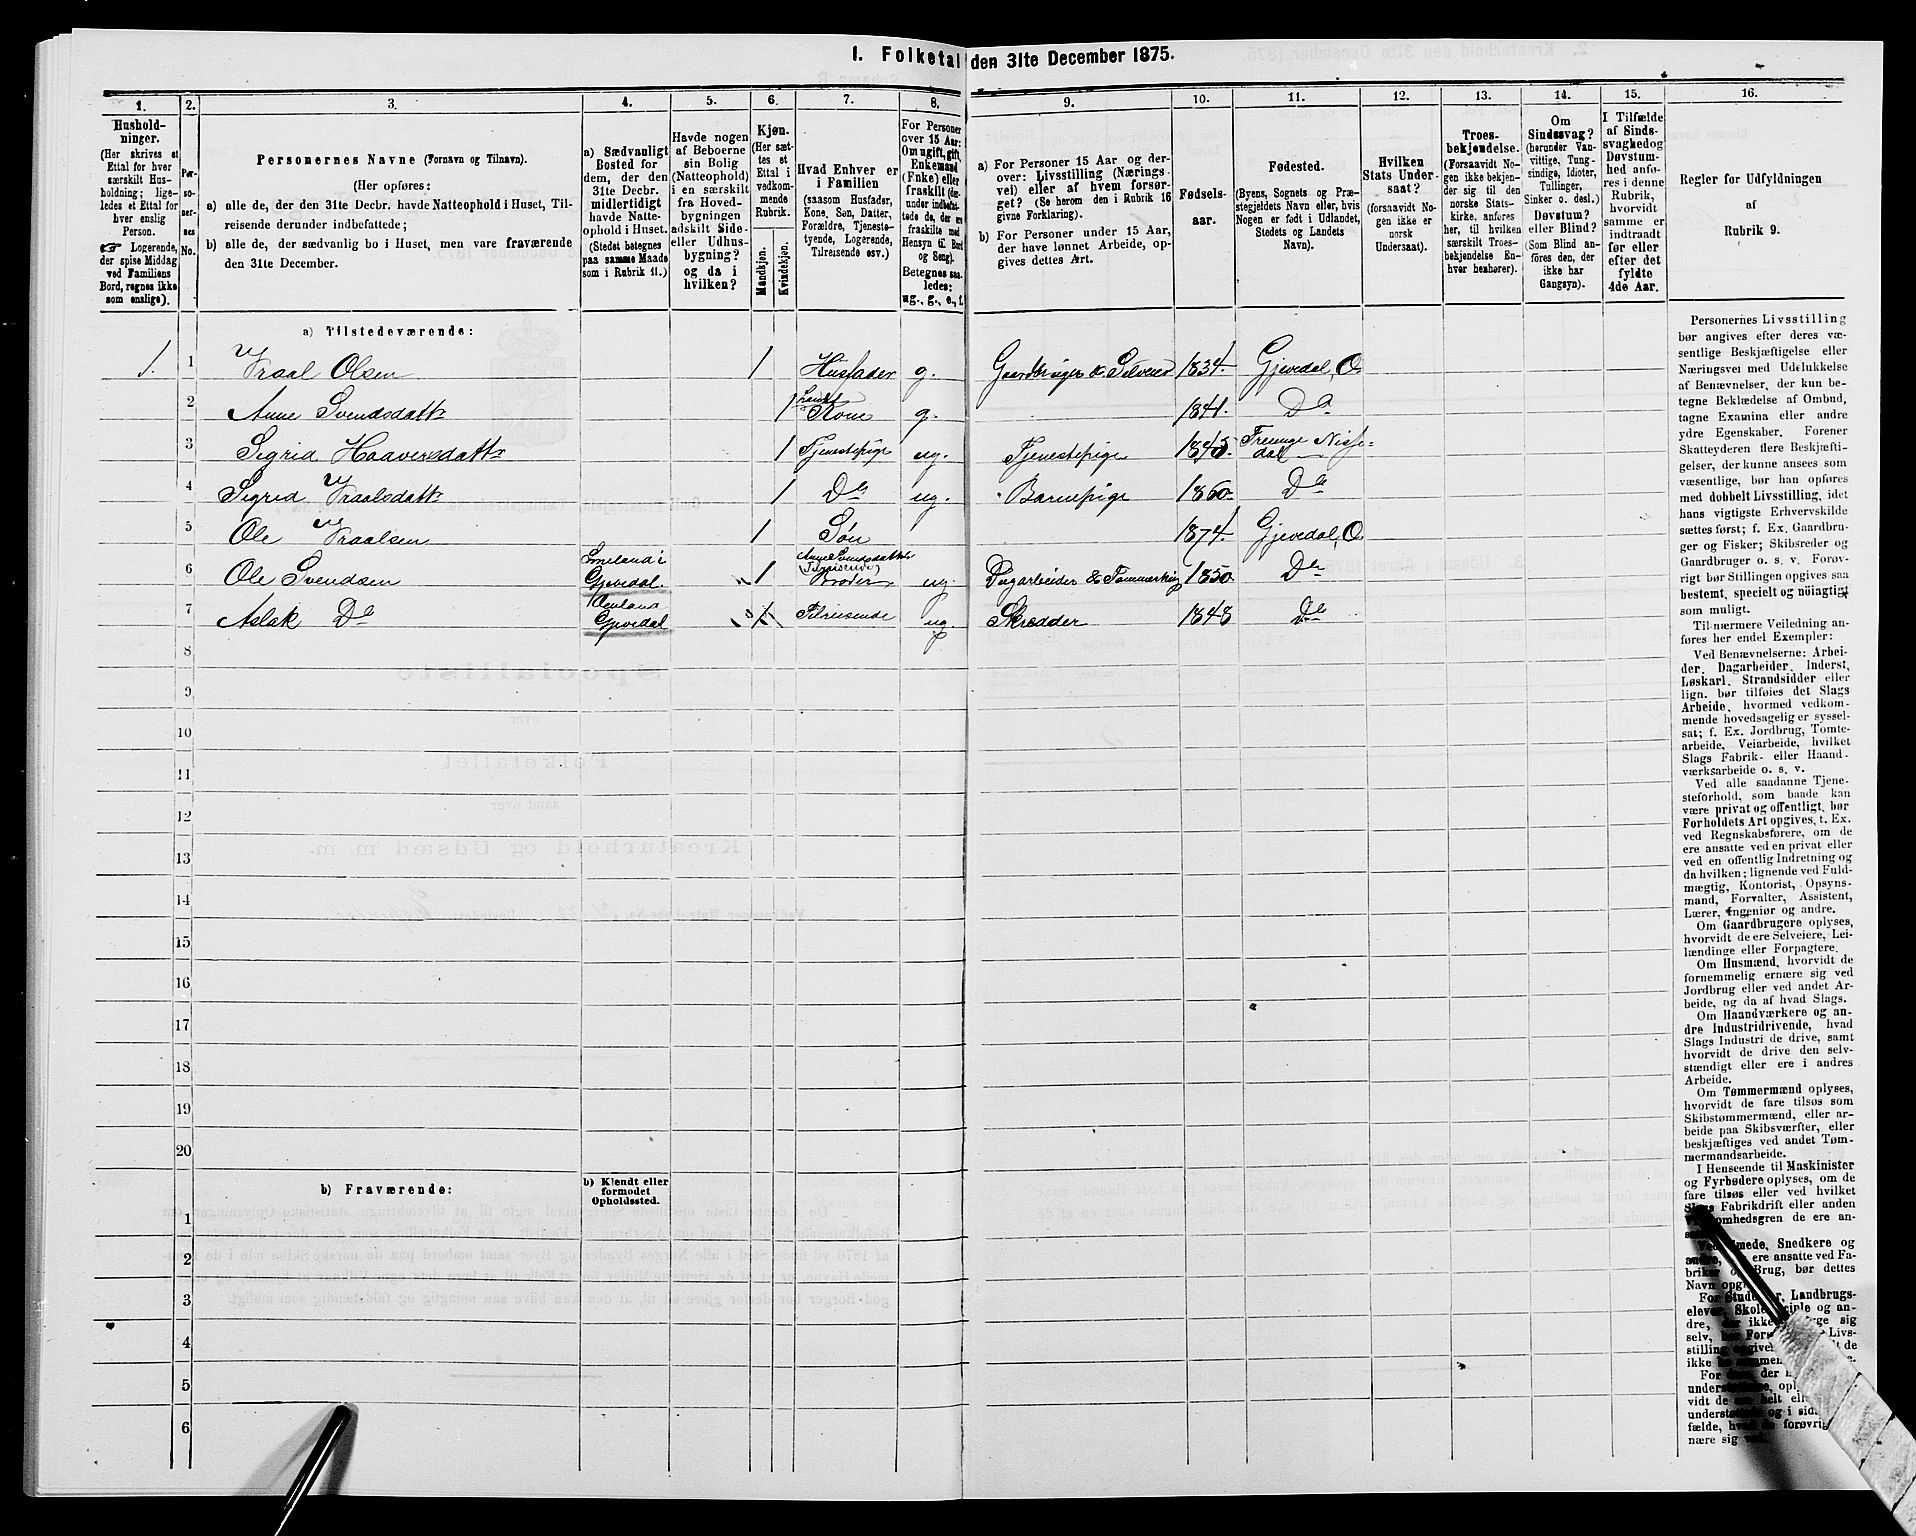 1. Folketal den 31te December 1875.
1. 2. 3. 4. 5. 6. 7. 8. 9. 10. 11. 12. 13. 14. 15. 16.
Hushold-
ninger.
(Her skrives et
Ettal for hver
særskilt Hus-
holdning; lige-
ledes et Ettal for
hver enslig
Person.
☞ Logerende,
der spise Middag
ved Familiens
Bord, regnes ikke
som enslige).
Per-
so-
ner-
nes
No.
Personernes Navne (Fornavn og Tilnavn).
(Her opføres:
a) alle de, der den 31te Decbr. havde Natteophold i Huset, Til-
reisende derunder indbefattede;
b) alle de, der sædvanlig bo i Huset, men vare fraværende
den 31te December.
a) Sædvanligt
Bosted for
dem, der den
31te Decbr.
midlertidigt
havde Natte-
ophold i Huset.
(Stedet betegnes
paa samme Maade
som i Rubrik 11.)
Havde nogen
af Beboerne
sin Bolig
(Natteophold)
i en særskilt
fra Hoved-
bygningen
adskilt Side-
eller Udhus-
bygning?
og da i
hvilken?
Kjøn.
(Her sæt-
tes et
Ettal i
vedkom-
mende
Rubrik.
Mandkjøn.
Kvindekjøn.
Hvad Enhver er
i Familien
(saasom Husfader,
Kone, Søn, Datter,
Forældre, Tjeneste-
tyende, Logerende,
Tilreisende osv.)
For Personer
over 15 Aar:
Om ugift, gift,
Enkemand
(Enke) eller
fraskilt (der-
under indbefat-
tede de, der ere
fraskilte med
Hensyn til Bord
og Seng).
Betegnes saa-
ledes:
ug., g., e., f.
a) For Personer 15 Aar og der-
over: Livsstilling (Nærings-
vei) eller af hvem forsør-
get? (Se herom den i Rubrik 16
givne Forklaring).
b) For Personer under 15 Aar,
der have lønnet Arbeide, op-
gives dettes Art.
Fødsels-
aar.
Fødested.
(Byens, Sognets og Præ-
stegjeldets Navn eller, hvis
Nogen er født i Udlandet,
Stedets og Landets
Navn).
Hvilken
Stats Under-
saat?
(forsaavidt No-
gen ikke er
norsk
Undersaat).
Troes-
bekjendelse.
(Forsaavidt No-
gen ikke bekjen-
der sig til den
norske Stats-
kirke, anføres
her, til hvilken
særskilt Troes-
bekjendelse En-
hver henhører).
Om
Sindssvag?
(herunder Van-
vittige, Tung-
sindige, Idioter,
Tullinger,
Sinker o. desl.)
Døvstum?
eller Blind?
(Som Blind an-
føres den, der
ikke har
Gangsyn).
I Tilfælde
af Sinds-
svaghed og
Døvstum-
hed anfø-
res i denne
Rubrik,
hvorvidt
samme er
indtraadt
før eller
efter det
fyldte
4de Aar.
Regler for Udfyldningen
af
Rubrik 9.
a) Tilstedeværende:
1. 1 Vraal Olsen 1 Husfader g. Gaardbruger & Selveier 1834. Gjevedal, O
2 Anne Svendsdatt 1 hans Kone g. 1841. Do
3 Sigrid Haaversdatt 1 Tjenestepige ug. Tjenestepige Nisse-
dal
4 Sigrid Vraalsdatt 1 Do ug. Barnepige 1860. Do
5 Ole Vraalsen 1 Søn 1874. Gjevedal, O
6 Ole Svendsen i
Gjevedal. 1 Anne Svendsdatters
Broder ug. Dagarbeider & 1850. Do
7 Aslak Do
Gjevedal Tilreisende ug. Skrædder 1848 Do
8
9
10
11
12
13
14
15
16
17
18
19
20
b) Fraværende: b) Kjendt eller
formodet
Opholdssted.
1
2
3
4
5
6
Personernes Livsstilling
bør angives efter deres væ-
sentlige Beskjæftigelse eller
Næringsvei med Udelukkelse
af Benævnelser, der kun be-
tegne Beklædelse af Ombud,
tagne Examina eller andre
ydre Egenskaber. Forener
Skatteyderen flere Beskjæfti-
gelser, der kunne ansees som
væsentlige, bør han opføres
med dobbelt Livsstilling, idet
hans vigtigste Erhvervskilde
sættes først; f. Ex. Gaardbru-
ger og Fisker; Skibsreder og
Gaardbruger o. s. v. Forøv-
rigt bør Stillingen opgives saa
bestemt, specielt og nöiagtigt
som muligt.
Til nærmere Veiledning an-
føres her endel Exempler:
Ved Benævnelserne: Arbei-
der, Dagarbeider, Inderst,
Løskarl, Strandsidder eller
lign. bør tilføies det Slags
Arbeide, hvormed vedkom-
mende hovedsagelig er syssel-
sat; f. Ex. Jordbrug, Tomte-
arbeide, Veiarbeide, hvilket
Slags Fabrik- eller Haand-
værksarbeide o. s. v.
Ved alle saadanne Tjene-
steforhold, som baade kan
være privat og offentligt, bør
Forholdets Art opgives, t. Ex.
ved Regnskabsførere, om de
ere ansatte ved en privat eller
ved en offentlig Indretning og
da hvilken; lignende ved Fuld-
mægtig, Kontorist, Opsyns-
mand, Forvalter, Assistent,
Lærer, Ingeniør og andre.
Om Gaardbrugere oplyses,
hvorvidt de ere Selveiere, Lei-
lændinge eller Forpagtere.
Om Husmænd, hvorvidt de
fornemmelig ernære sig ved
Jordbrug eller ved andet Ar-
beide, og da af hvad Slags.
Om Haandværkere og an-
dre Industridrivende, hvad
Slags Industri de drive, samt
hvorvidt de drive den selv-
stændigt eller ere i andres
Arbeide.
Om Tømmermænd oplyses,
hvorvidt de fare tilsøs som
Skibstømmermænd, eller ar-
beide paa Skibsværfter, eller
beskjæftiges ved andet Tøm-
mermandsarbeide.
I Henseende til Maskinister
og Fyrbødere oplyses, om de
fare tilsøs eller ved hvilket
Slags Fabrikdrift eller anden
de ere an-
Snedkere og
ere ansatte ved Fa-
Brug, bør dettes
Navn
Landbrugs-
og an-
dre, ikke sig
selv, Livs-
de
ikke
For der
eller
og i
fælde, forøvrig
nære sig